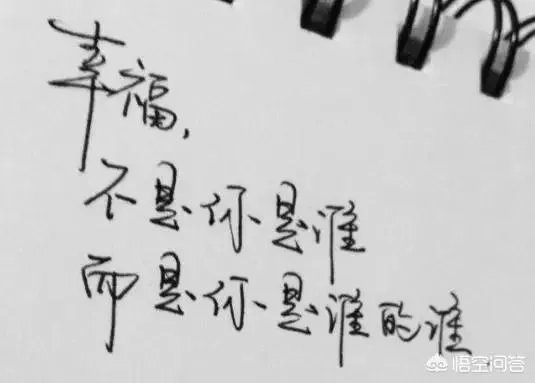 幸福，
不是你是谁
而是你是谁的谁
悟空问答